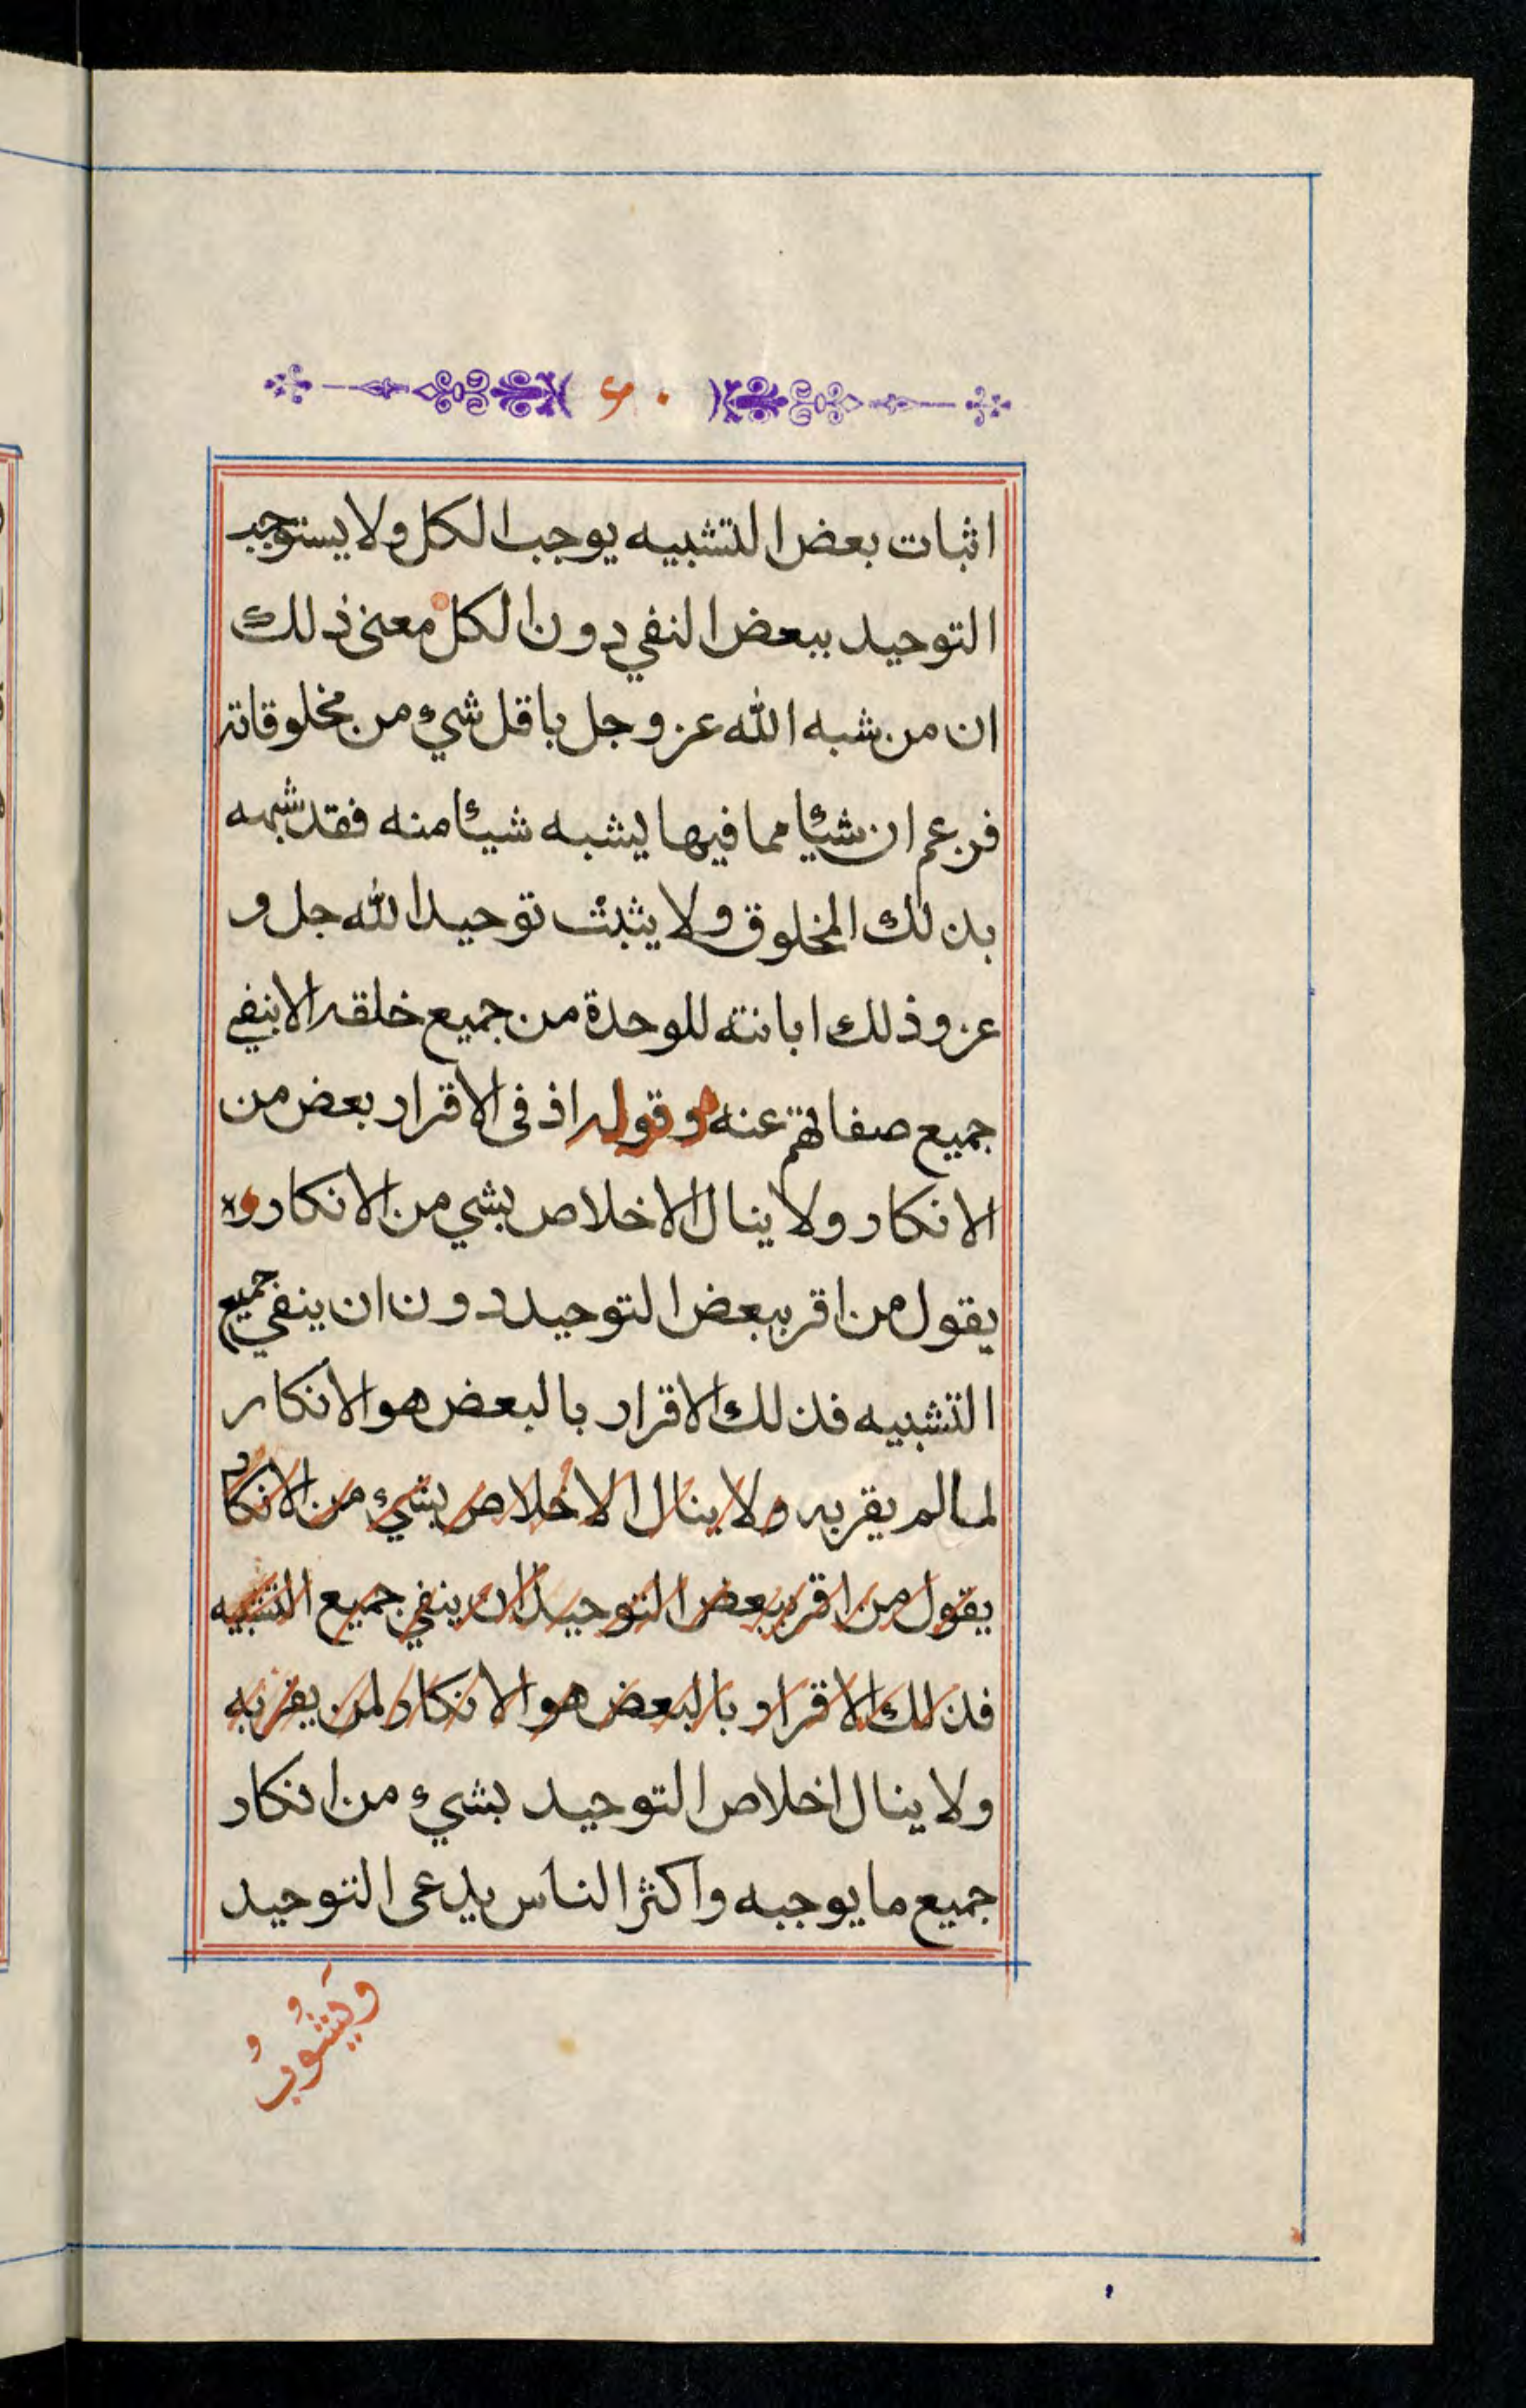 ٠ ٤
اثبات بعض التشبيه يوجب الكل ولا يستوجب
التوحيد ببعض النفي دون الكل معنى ذلك
ان من شبه الله عز وجل باقل شيء من مخلوقاته
فزعم ان شيئا مما فيها يشبه شيئا منه فقد شبهه
بذلك المخلوق ولا يثبت توحيد الله جل و
عز وذلك ابانته للوحدة من جميع خلقه الا بنفي
جميع صفاتهم عنه وقوله اذ في الاقرار بعض من
الانكار ولا ينال الاخلاص بشي من الانكار
يقول من اقر ببعض التوحيد دون ان ينفي جميع
التشبيه فذلك الاقرار بالبعض هو الانكار
لما لم يقر به ولا ينال الاخلاص بشيء من الانكار
يقول من اقر ببعض التوحيد ان ينفي جميع التشبيه
فذلك الاقرار بالبعض هو الانكار لمن يقر به
ولا ينال اخلاص التوحيد بشيء من انكار
جميع ما يوجبه واكثر الناس يدعى التوحيد
ويشوب